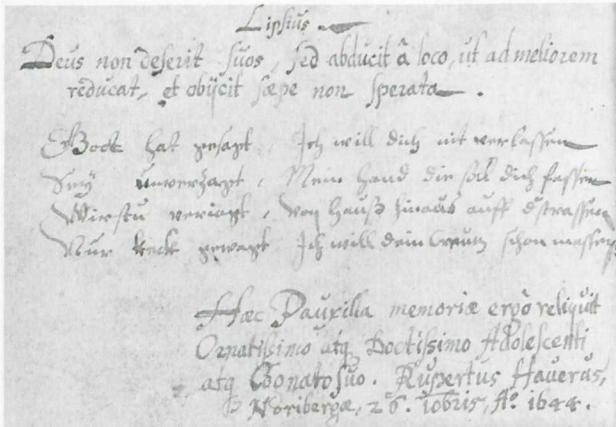 Lipsius
Deus non deserit suos, sed abducit â loco, ut ad meliorem
reducat, et obijcit sæpe non sperata.
Gott hat gesagt, Ich will dich nit verlassen
Sey unverzagt, Mein hand die sol dich fassen
Wirstu veriagt, von hauß hinaus auff d'strassen
Nur keck gewagt Ich will dein Creutz schon massen
Hæc Pauxilla memoriæ ergò reliquit
Ornatissimo atq Doctissimo Adolescenti
atq suo. Rupertus Haverus,
Noribergæ, 26. 10bris, Aº. 1644.